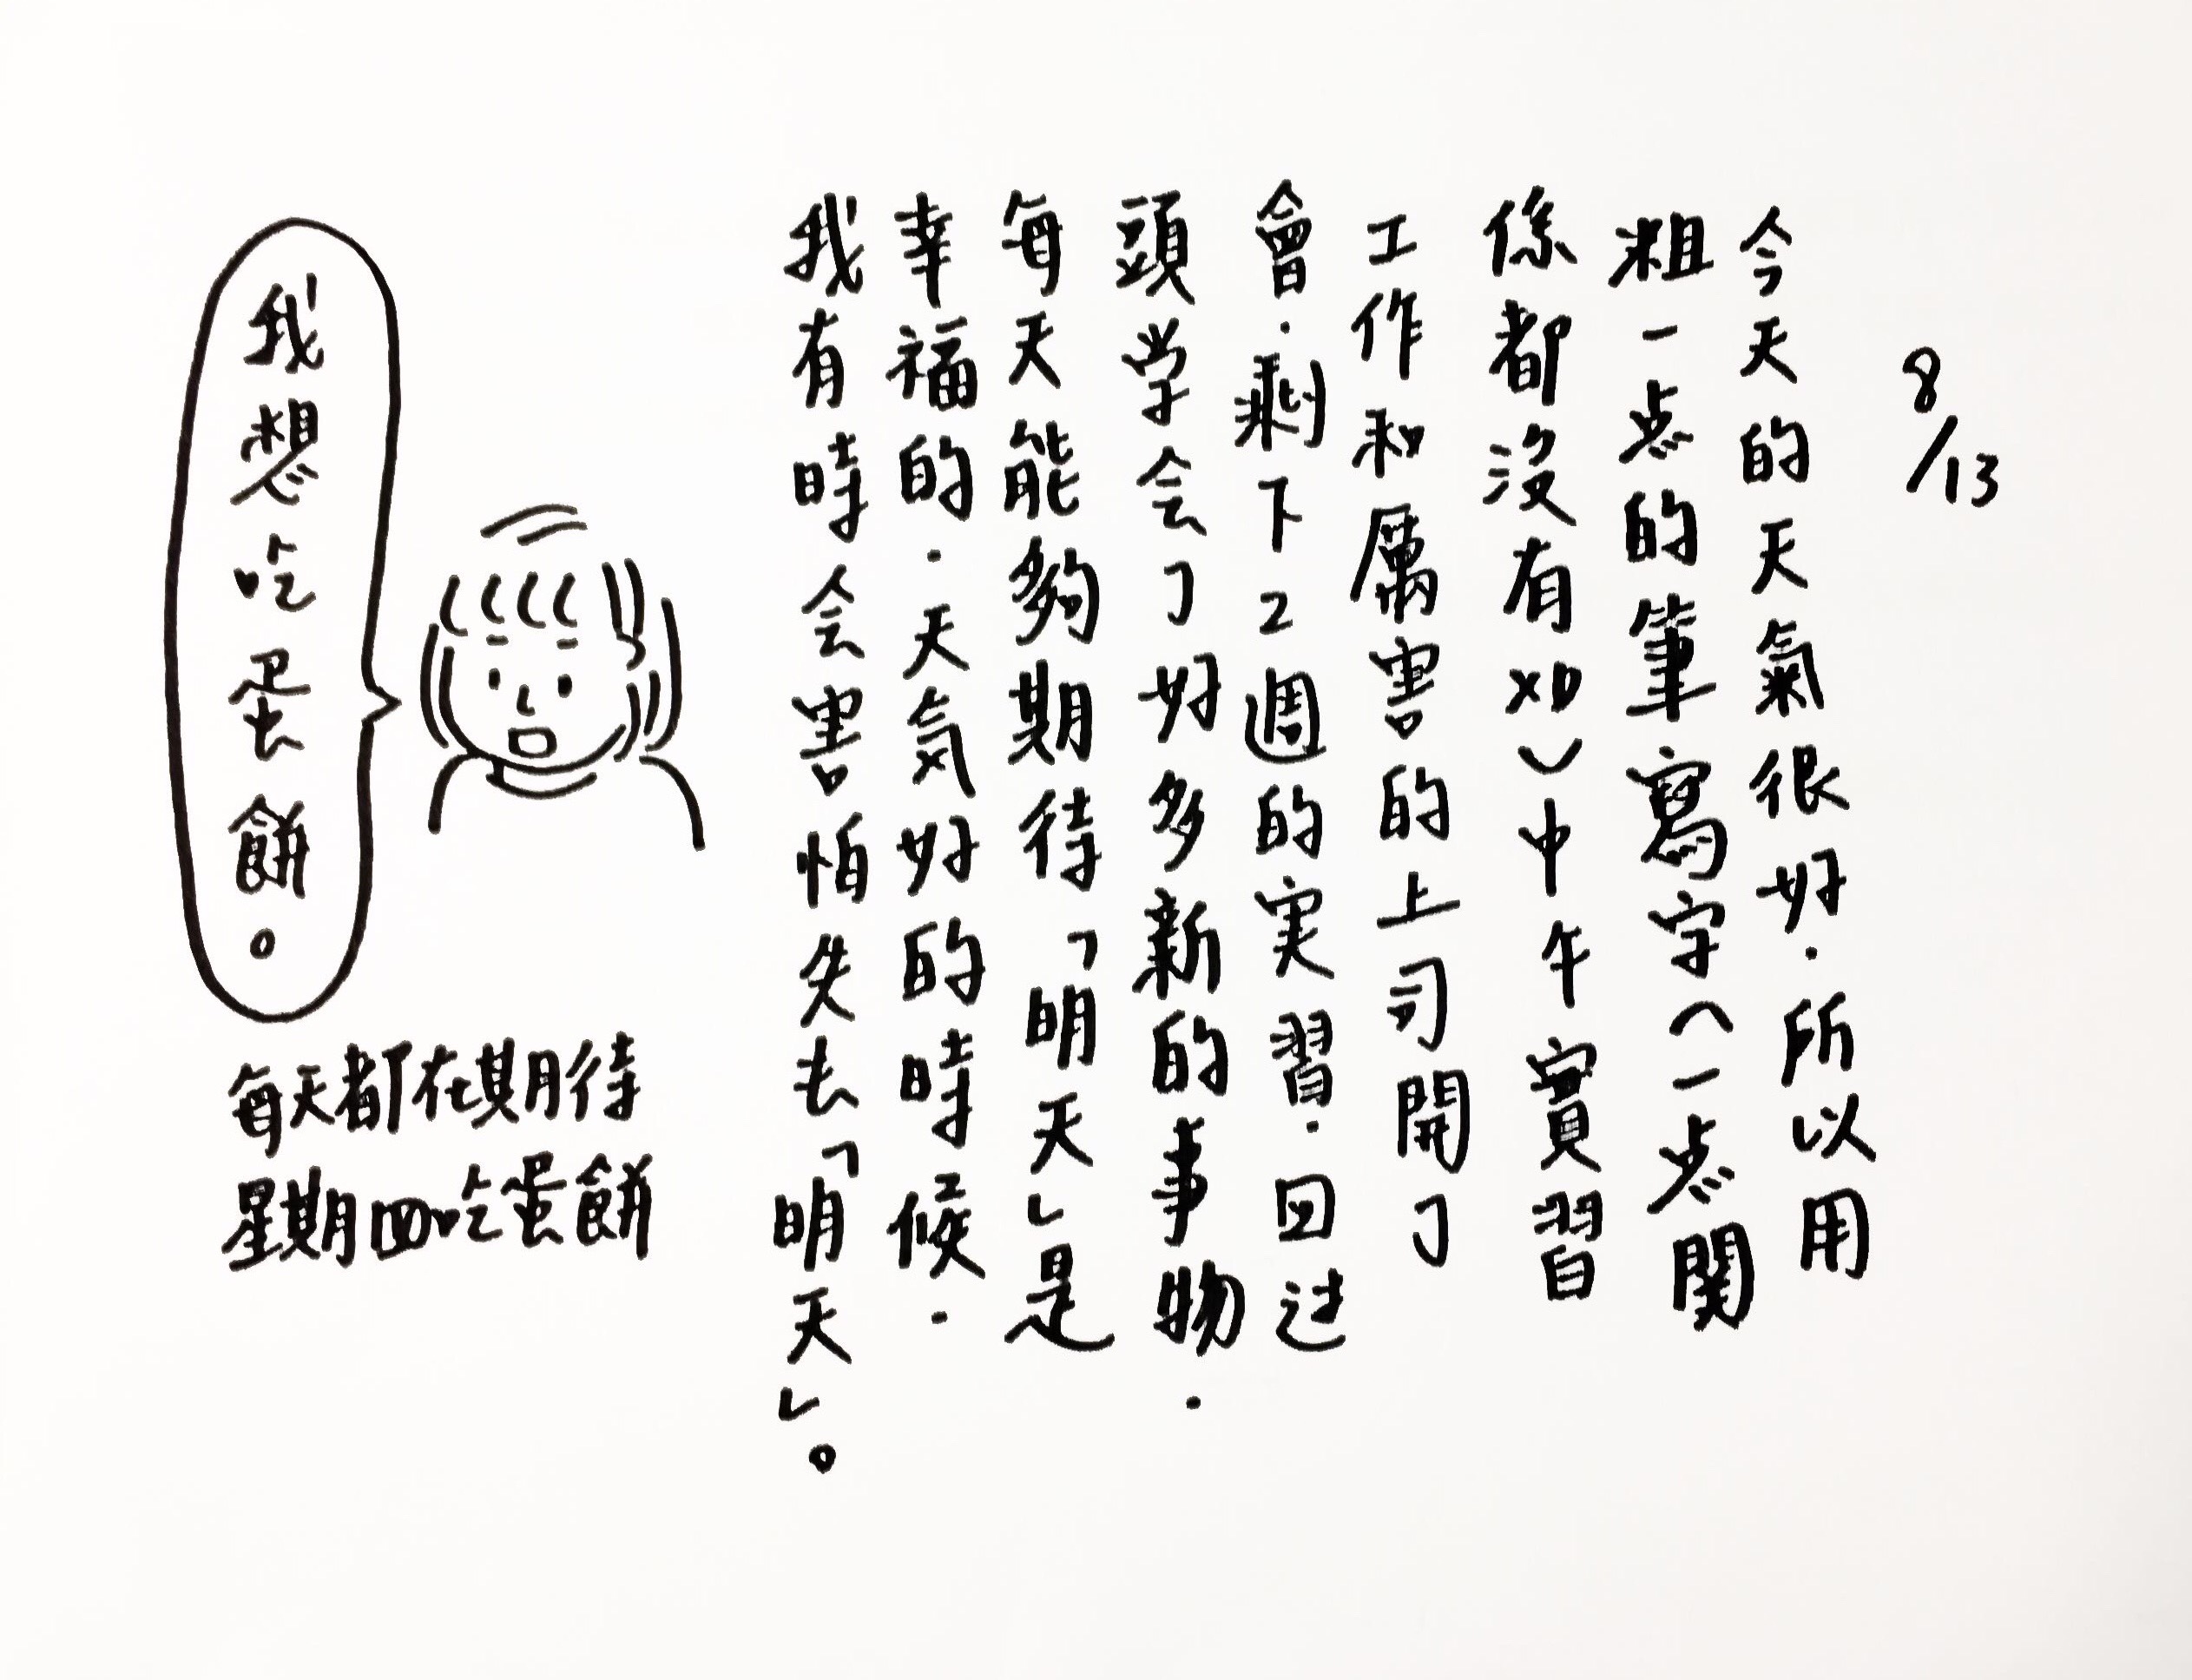 8/13
今天的天氣很好.所以用
粗一点的筆寫字(一点関
係都沒有XD)中午實習
工作和厲害的上司開了
會.剩下2週的実習.回过
頭学会了好多新的事物.
每天能夠期待「明天」是
幸福的.天気好的時候.
我有時会害怕失去「明天」。
我想吃蛋餅。
每天都在期待
星期四吃蛋餅